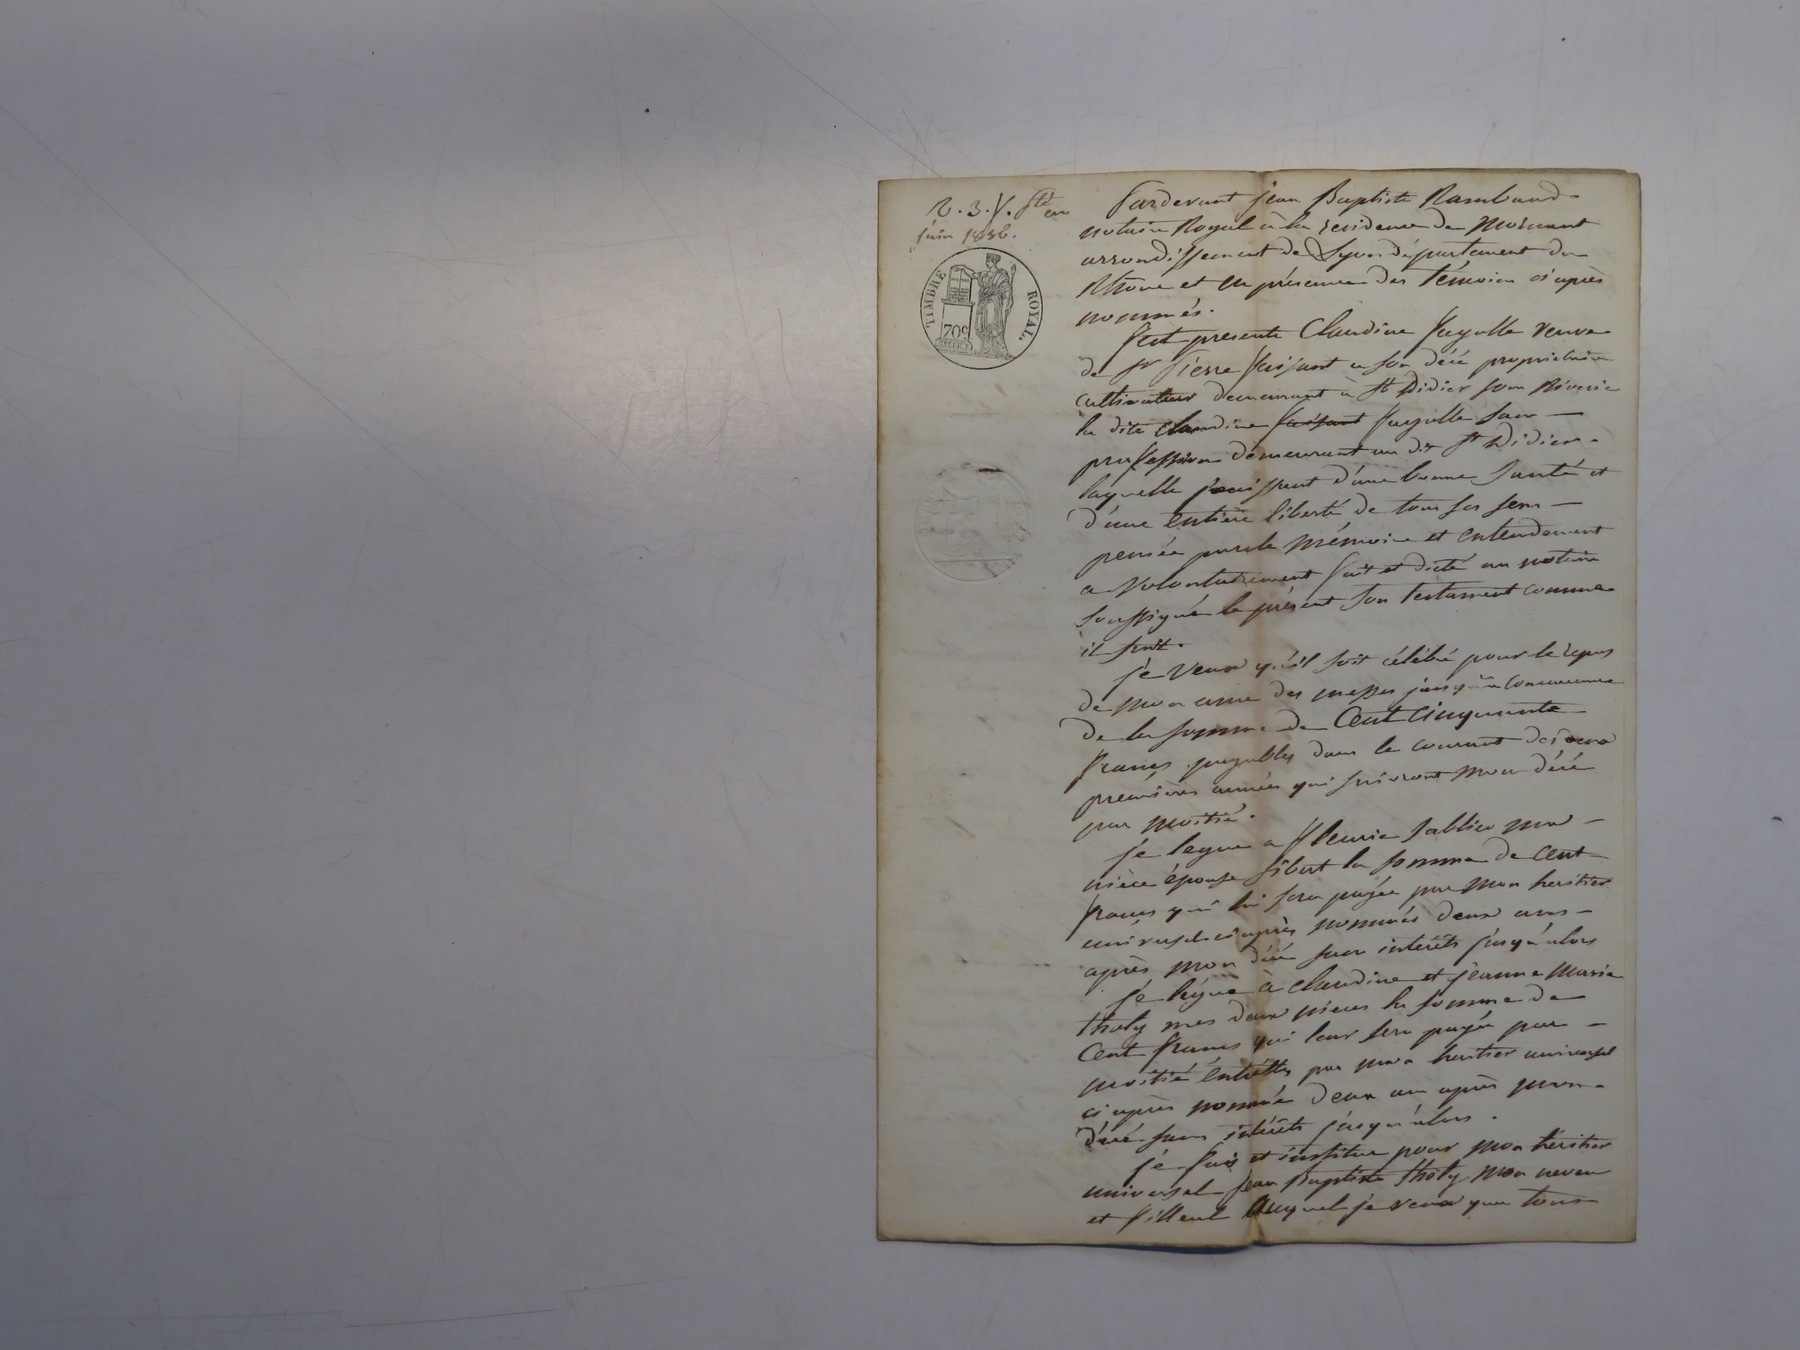 R. 3. f. 
Juin 1836.
TIMBRE ROYAL.
70c
Pardevant Jean Baptiste Rambaud
notaire Royal à la residence de Mornant
arrondissement de Lyon département du
Rhône et en présence des témoins ci après
nommés.
fut presente Claudine fayolle veuve
de Sr Pierre faisant a son décé propriétaire
cultivateur demeurant à St Didier sous Riverie
la dite Claudine faisant fayolle sans
profession demeurant au dit St Didier
laquelle jouissant d'une bonne santé et
d'une entière liberté de tous ses sens
pensée parole mémoire et entendement
a volontairement fait et dicté au notaire
soussigné le présent son testament comme
il suit.
je veux qu'il soit célébré pour le repos
de mon ame des messes jusqu'a concurrence
de la somme de Cent cinquante
francs payables dans le courant des deux
premières années qui suivront mon décé
par moitié.
je legue a fleurie ma
nièce épouse la somme de cent
francs qui lui sera payée par mon heritier
universel ci après nommés deux ans
après mon décé sans intérêts jusqu'alors
je légue à Claudine et jeanne Marie
thoty mes deux nieces la somme de
Cent francs qui leur sera payée par
moitié entr'elles par mon heritier universel
ci après nommé deux ans après mon
décé sans intérêts jusqu'alors.
je fais et institue pour mon héritier
universel jean Baptiste thoty mon neveu
et filleul Auquel je veux que tous